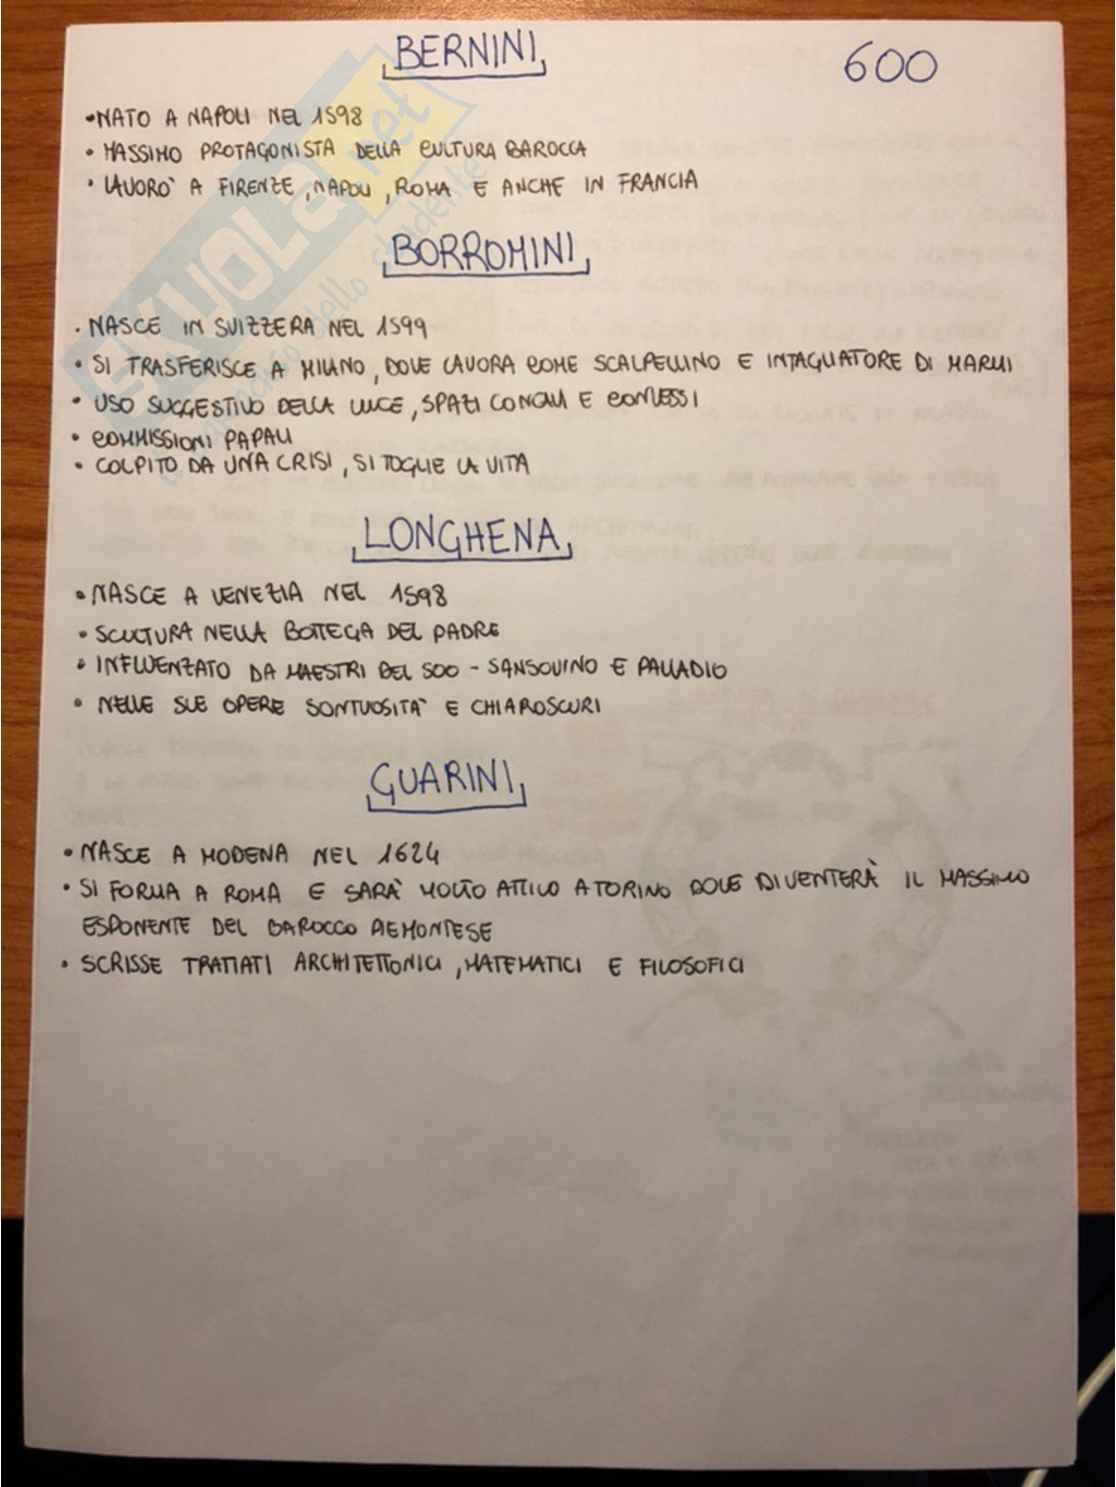 BERNINI
600
• NATO A NAPOLI NEL 1598
• MASSIMO PROTAGONISTA DELLA CULTURA BAROCCA
• LAVORO' A FIRENZE, NAPOLI, ROMA E ANCHE IN FRANCIA
BORROMINI
• NASCE IN SVIZZERA NEL 1599
• SI TRASFERISCE A MILANO, DOVE LAVORA COME SCALPELLINO E INTAGLIATORE DI MARMI
• USO SUGGESTIVO DELLA LUCE, SPAZI CONCAVI E CONVESSI
• COMMISSIONI PAPALI
• COLPITO DA UNA CRISI, SI TOGLIE LA VITA
LONGHENA
• NASCE A VENEZIA NEL 1598
• SCULTURA NELLA BOTTEGA DEL PADRE
• INFLUENZATO DA MAESTRI DEL 500 - SANSOVINO E PALLADIO
• NELLE SUE OPERE SONTUOSITÀ E CHIAROSCURI
GUARINI
• NASCE A MODENA NEL 1624
• SI FORMA A ROMA E SARÀ MOLTO ATTIVO A TORINO DOVE DIVENTERÀ IL MASSIMO
ESPONENTE DEL BAROCCO PIEMONTESE
• SCRISSE TRATTATI ARCHITETTONICI, MATEMATICI E FILOSOFICI
SKUOLA.net